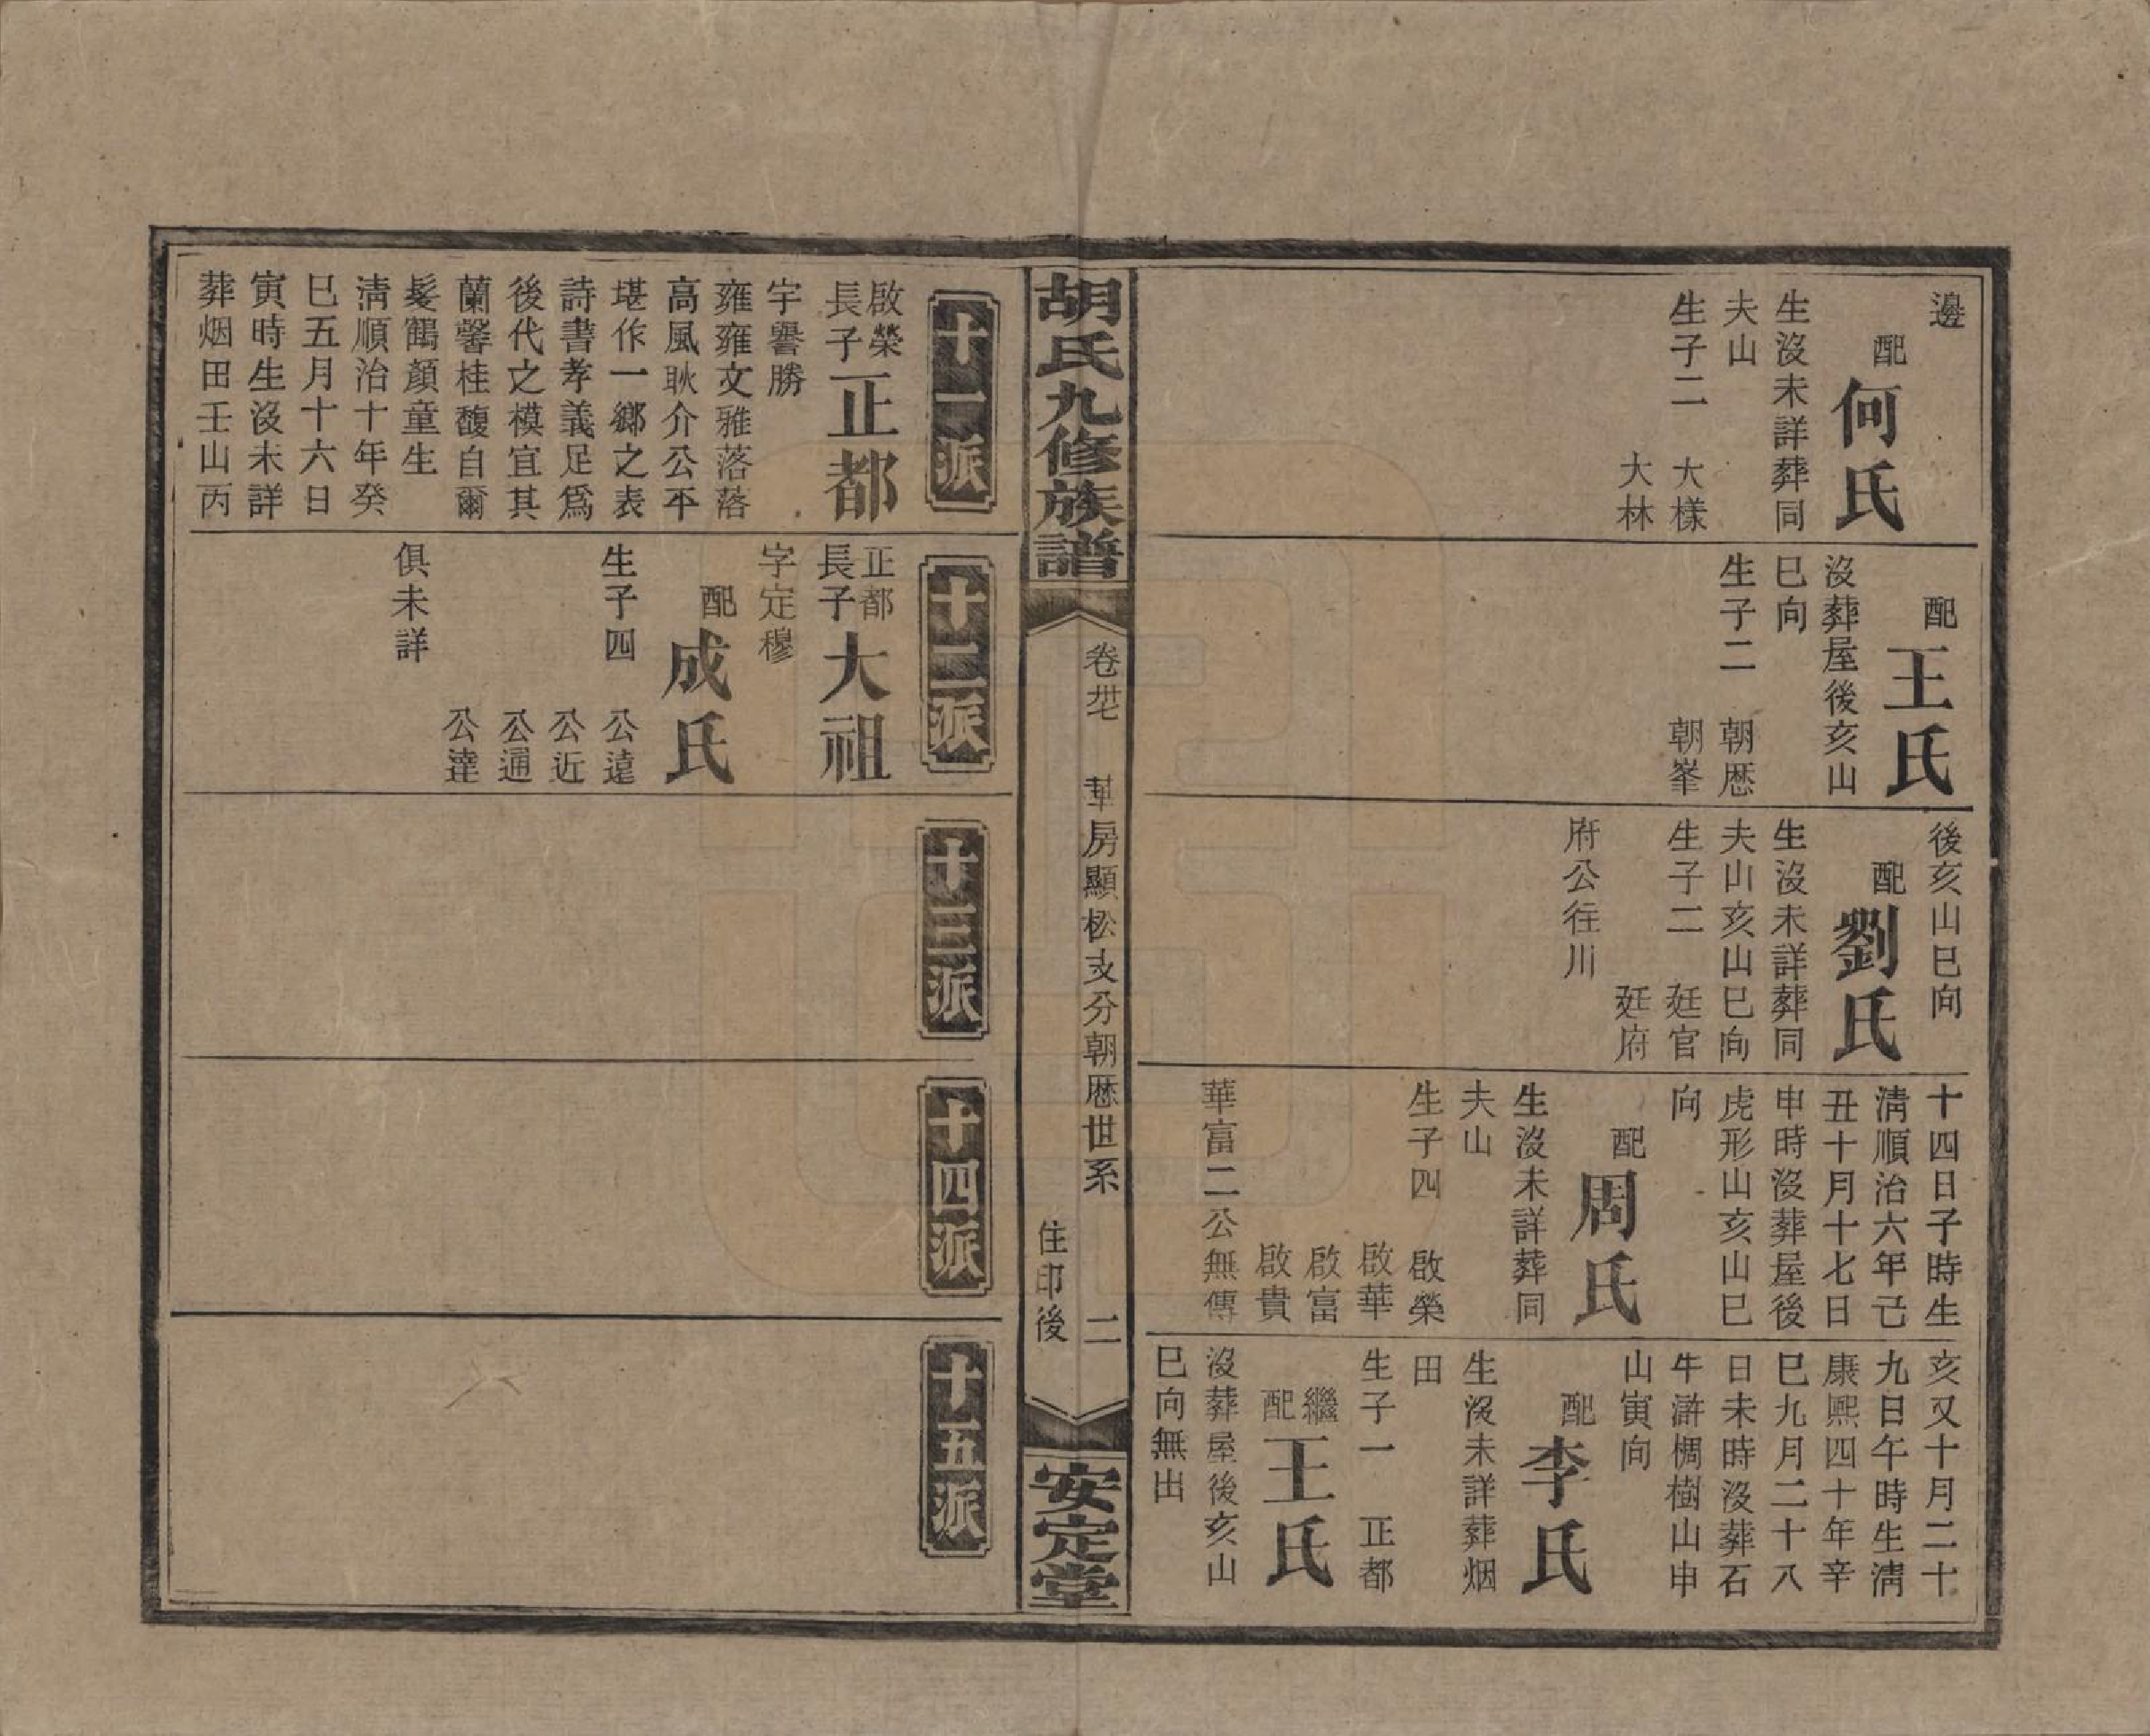 邊
配
何氏
生沒未詳葬同
夫山
生子二 大樣
大林
配
王氏
沒葬屋後亥山
巳向
生子二 朝厯
朝峯
後亥山巳向
配
劉氏
生沒未詳葬同
夫山亥山巳向
生子二 廷官
廷府
府公往川
十四日子時生
淸順治六年己
丑十月十七日
申時沒葬屋後
虎形山亥山巳
向
配
周氏
生沒未詳葬同
夫山
生子四 啟榮
啟華
啟富
啟貴
華富二公無傳
亥又十月二十
九日午時生淸
康熙四十年辛
巳九月二十八
日未時沒葬石
牛滸椆樹山申
山寅向
配
李氏
生沒未詳葬烟
田
生子一 正都
繼配
王氏
沒葬屋後亥山
巳向無出
胡氏九修族譜
卷廿七 華房顯松支分朝厯世系 二
住印後
安定堂
十一派
啟榮長子
正都
字譽勝
雍雍文雅落落
高風耿介公平
堪作一鄉之表
詩書孝義足爲
後代之模宜其
蘭馨桂馥自爾
髮鶴顏童生
淸順治十年癸
巳五月十六日
寅時生沒未詳
葬烟田壬山丙
十二派
正都長子
大祖
字定穆
配
成氏
生子四 公遠
公近
公通
公達
俱未詳
十三派
十四派
十五派